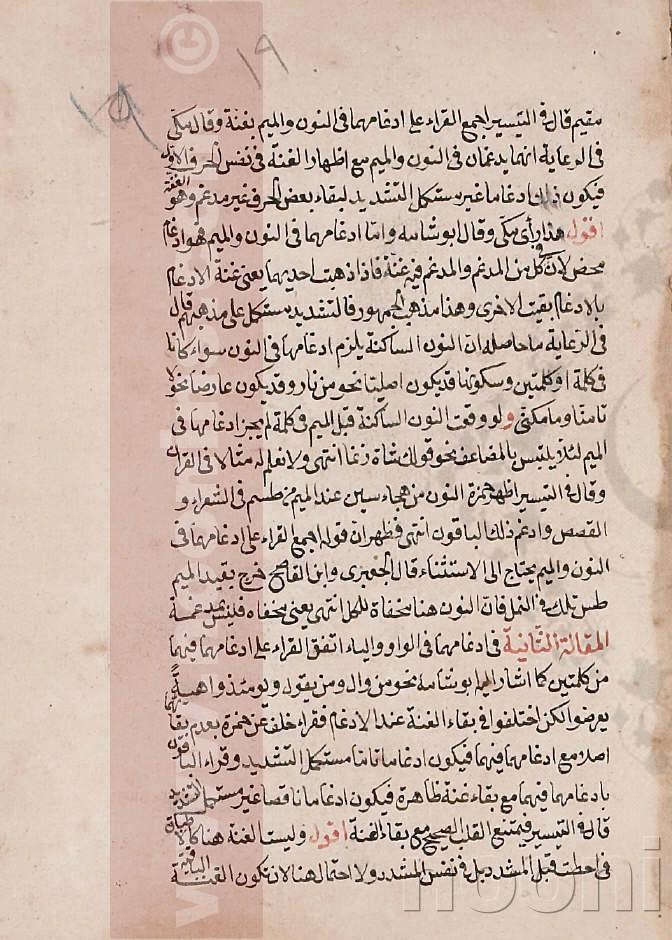 ١٩
١٩
مقيم قال في التيسير اجمع القراء على ادغامهما في النون والميم بغنة وقال مكى
في الرعاية انهما يدغمان في النون والميم مع اظهار الغنة في نفس الحرف الاول
فيكون ذلك ادغاما غير مستكمل التشديد لبقاء بعض الحرف غير مدغم وهو الغنة
اقول هذا رأى مكى وقال ابو شامه واما ادغامهما في النون والميم فهو ادغام
محض لان في كل من المدغم والمدغم فيه غنة فاذا ذهبت احديهما يعنى غنة الادغام
بالادغام بقيت الاخرى وهذا مذهب الجمهور فالتشديد مستكمل على مذهبهم قال
في الرعاية ما حاصله ان النون الساكنة يلزم ادغامها في النون سواء كانا
في كلمة او كلمتين وسكونها قد يكون اصليا نحو من نار وقد يكون عارضا نحو لا
تامنا وما مكنى ولو وقعت النون الساكنة قبل الميم في كلمة لم يجز ادغامها في
الميم لئلا يلتبس بالمضاعف نحو قولك شاة زنما انتهى ولا نعلم له مثالا في القران
وقال في التيسير اظهر حمزة النون من هجاء سين عند الميم من طسم في الشعراء و
القصص وادغم ذلك الباقون انتهى فظهر ان قوله اجمع القراء على ادغامهما في
النون والميم يحتاج الى الاستثناء قال الجعبرى وابن القاصح خرج بقيد الميم
طس تلك في النمل فان النون هنا مخفاة للكل انتهى يعنى مخفاة فليس بمدغمة
المقالة الثانية في ادغامهما في الواو والياء اتفق القراء على ادغامهما فيهما
من كلمتين كما اشار اليه ابو شامه نحو من وال ومن يقول ويومئذ واهية
يعرضوا لكن اختلفوا في بقاء الغنة عند الادغام فقراء خلف عن حمزة بعدم بقائها
اصلا مع ادغامهما فيهما فيكون ادغاما تاما مستكمل التشديد وقراء الباقون
بادغامهما فيهما مع بقاء غنة ظاهرة فيكون ادغاما ناقصا غير مستكمل التشديد
قال في التيسير فيمتنع القلب الصحيح مع بقاء الغنة اقول وليست الغنة هنا كالاطباق
في احطت قبل المشدد بل في نفس المشدد ولا احتمال هنا لان تكون الغنة الباقية
nooni